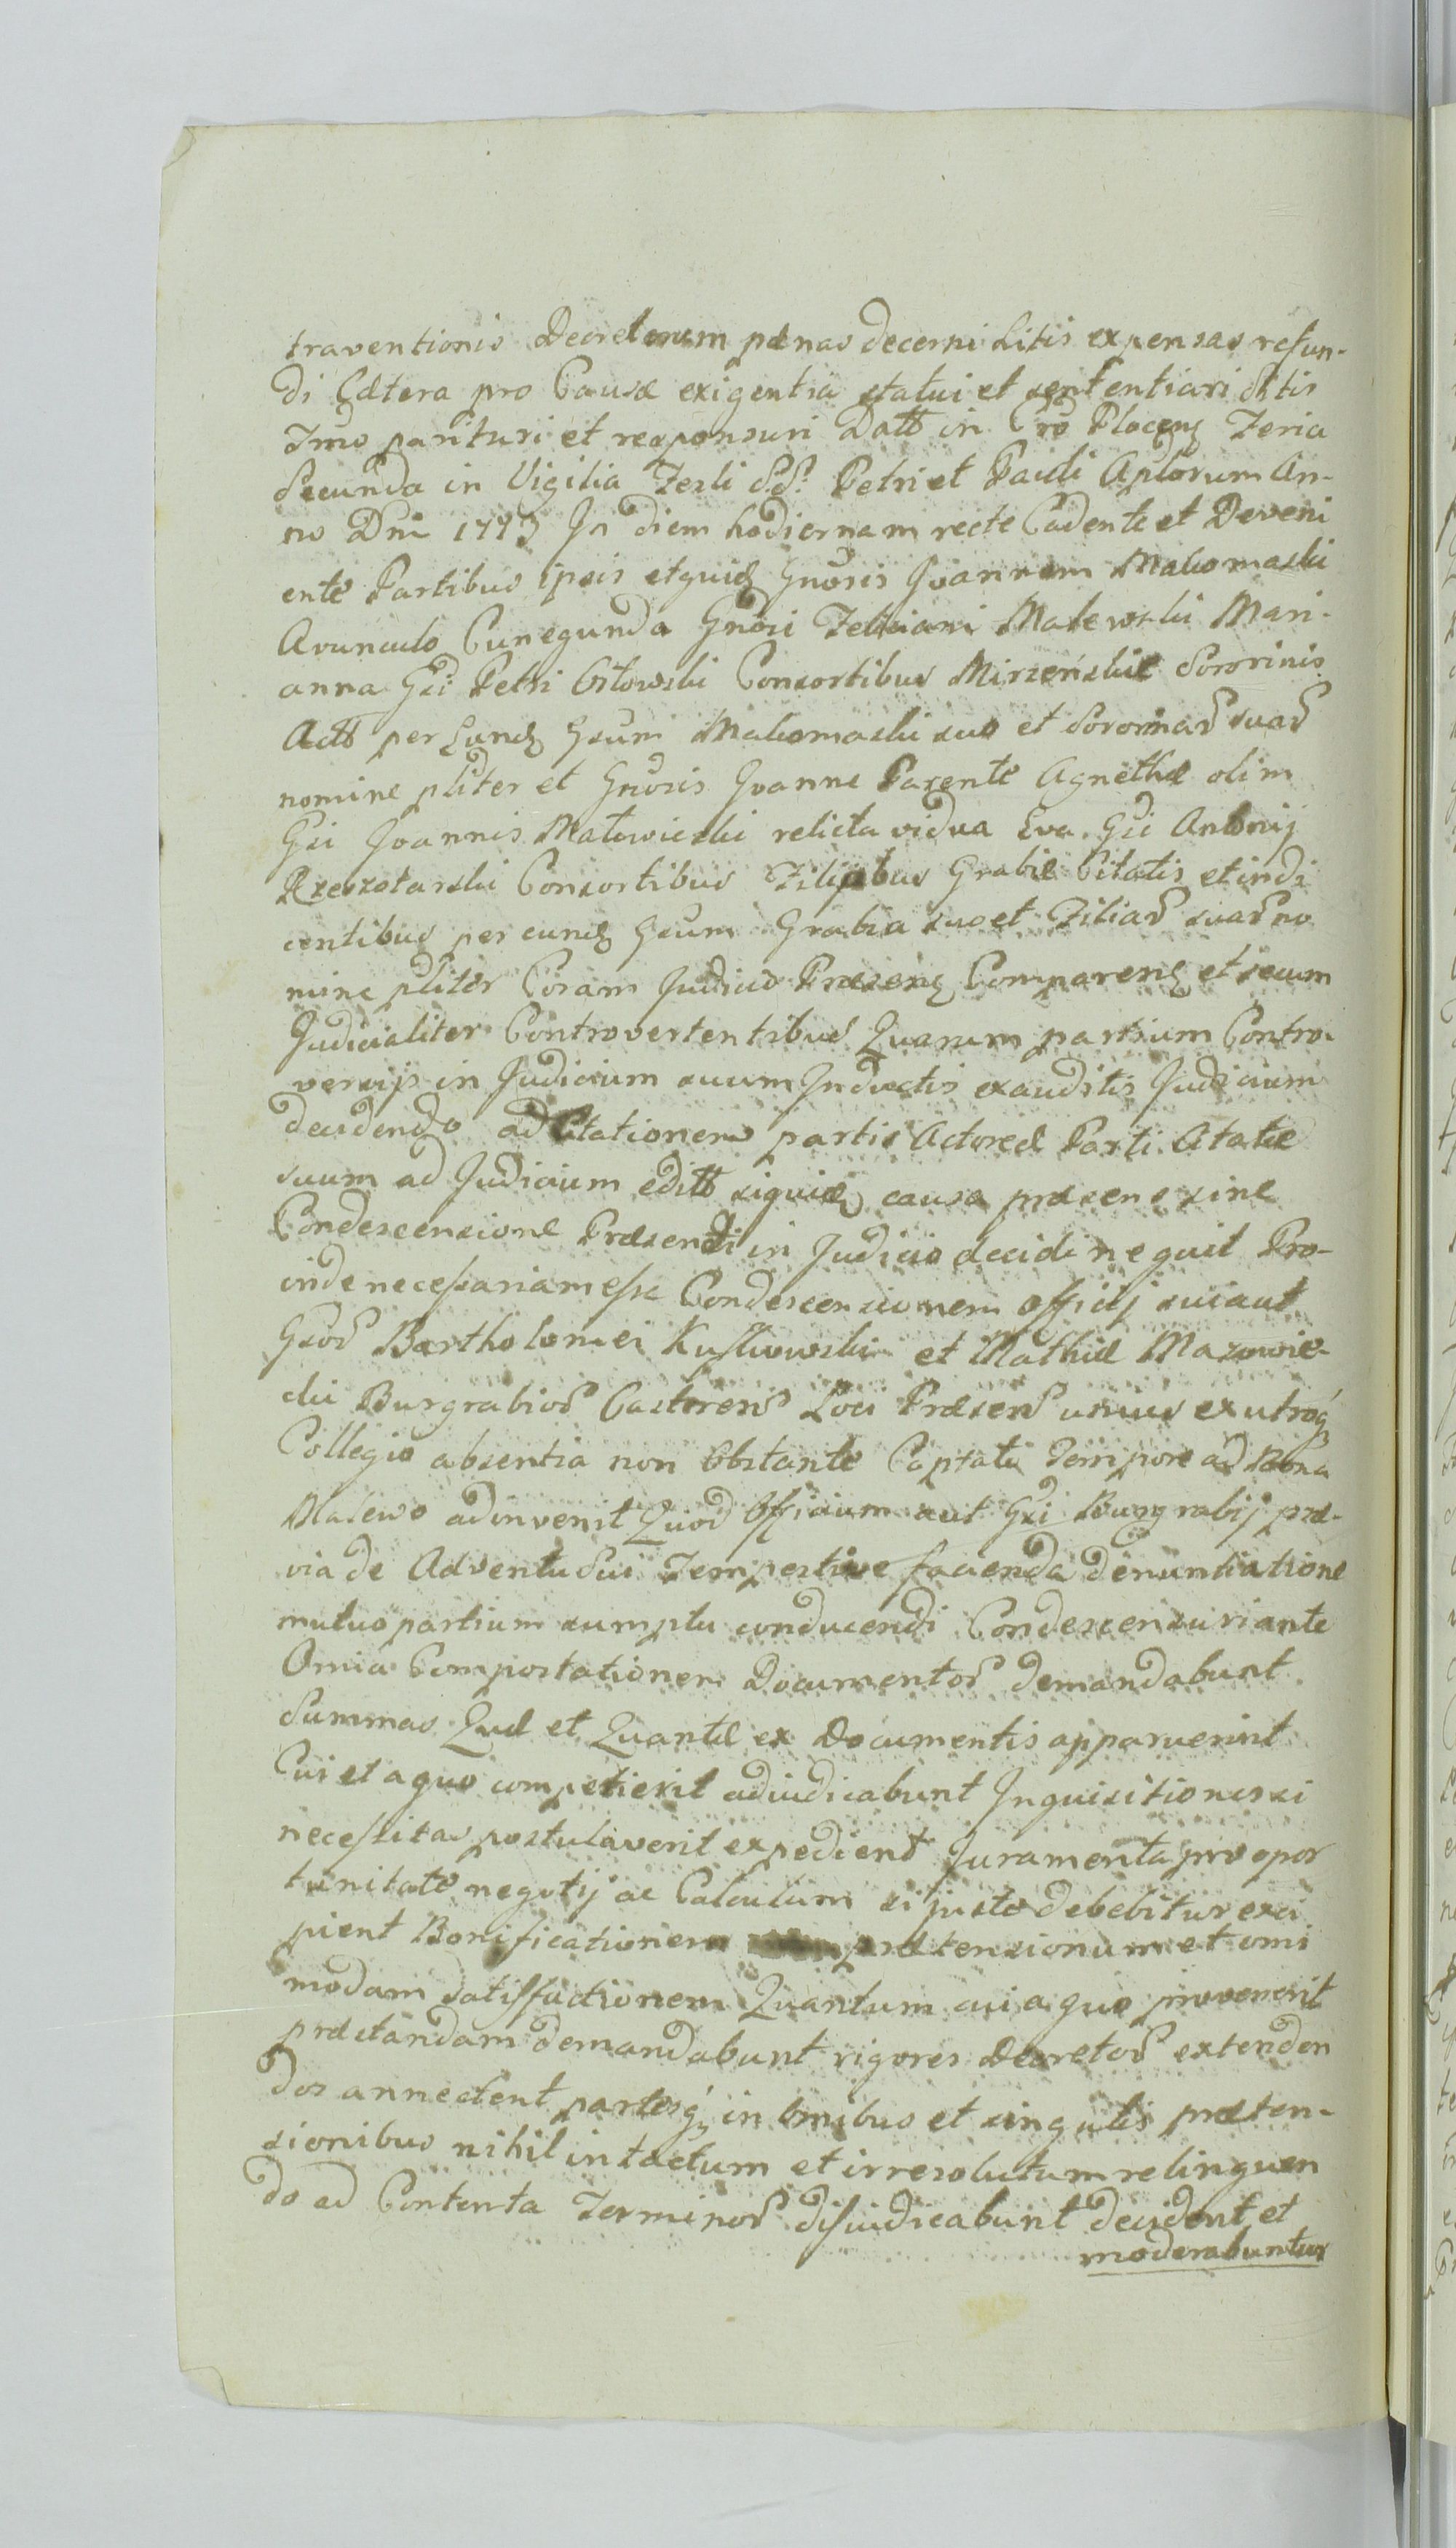 traventionis Decretorum pænas decerni Litis expensas refun-
di Cætera pro Causæ exigentia statui et sententiari sttis
Trmo parituri et responsuri Datt in Cro Plocens Feria
Secunda in Vigilia Festi SS: Petri et Pauli Aplorum An-
no Dni 1773 In diem hodiernam recte Cadente et Deveni
ente Partibus ipsis et quidem Gnosis Joannem Makomaski
Avunculo Cunegunda Gnosi Feliciani Malewski Mari-
anna Gsi Petri Orłowski Consortibus Mirzeńskie Sororinis
Actt per Eund Gsum Makomaski suo et Sororinar suar
nomine pliter et Gnosis Joanne Parente Agnethæ olim
Gsi Joannis Małowieski relicta vidua Eva Gsi Antonij
Rzeszotarski Consortibus Filiabus Grabie Citatis et indi
centibus per eund Gsum Grabia suo et Filiar suar no
mine pliter Coram Judicio Præsens Comparens et secum
Judicialiter Controvertentibus Quarum partium Contro-
versijs in Judicium suum Inductis exauditis Judicium
decidendo ad Citationem partis Actoreæ Parti Citatæ
suum ad Judicium editt siquid causa præsens sine
Condescensione Præsenti in Judicio decidi nequit Pro-
inde necessariam esse Condescensionem Officij sui aut
Gsor Bartholomei Kuślwowski et Mathiæ Mazowie-
cki Burgrabior Castrens Loci Præsens unius ex utroq
Collegio absentia non Obstante Captato Tempore ad Bona
Malewo adinvenit Quod Officium aut Gsi Burgrabij præ-
via de Adventu Sui Tempestive facienda denuntiatione
mutuo partium sumptu conducendi Condescensuri ante
Omia Comportationem Documentor demandabunt
Summas Quæ et Quantæ ex Documentis apparuerint
Cui et a quo competierit adiudicabunt Inquisitiones si
necessitas postulaverit expedient Juramenta pro opor
tunitate negotij ac Calculum si justo debebitur exci
pient Bonificationem prætensionum et omi
modam satisfactionem Quantum cui a quo provenerit
præstandam demandabunt rigores Decretor extenden
dos annectent partesq in omibus et singulis præten-
sionibus nihil intactum et irresolutum relinquen
do ad Contenta Terminor disiudicabunt decident et
moderabuntur